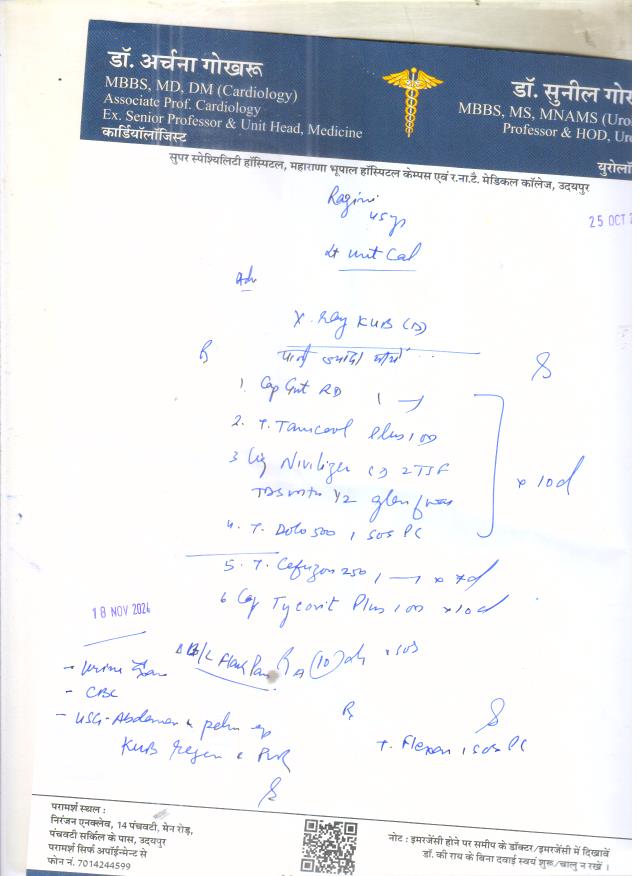 डॉ. अर्चना गोखरू
MBBS, MD, DM (Cardiology)
Associate Prof. Cardiology
Ex. Senior Professor & Unit Head, Medicine
कार्डियॉलॉजिस्ट
डॉ. सुनील गोख
MBBS, MS, MNAMS (Uro
Professor & HOD, Ur
युरोलॉ
सुपर स्पेश्यिलिटी हॉस्पिटल, महाराणा भूपाल हॉस्पिटल केम्पस एवं र.ना.टै. मेडिकल कॉलेज, उदयपुर
25 OCT 2
Ragini
45 yr
Lt unit Cal
Adv
X. Ray KUB (D)
पानी ज्यादा पीये
1. Cap Gut RD 1
2. T. Plus 1 OD
3 2 TSF
TDS with 1/2 glass
4. T. Dolo 500 1 SOS PC
x 10d
5. T. 250 1 x 7d
6 Cap Plus 1 OD x 10d
18 NOV 2024
B/L Flank Pain (10) SOS
- Urine
- CBC
- USG - Abdomen
KUB Region PVR
T. Flexon 1 SOS PC
परामर्श स्थल :
निरंजन एनक्लेव, 14 पंचवटी, मेन रोड़,
पंचवटी सर्किल के पास, उदयपुर
परामर्श सिर्फ अपॉईन्मेन्ट से
फोन नं. 7014244599
नोट : इमरजेंसी होने पर समीप के डॉक्टर/इमरजेंसी में दिखावें
डॉ. की राय के बिना दवाई स्वयं शुरू/चालु न रखें ।